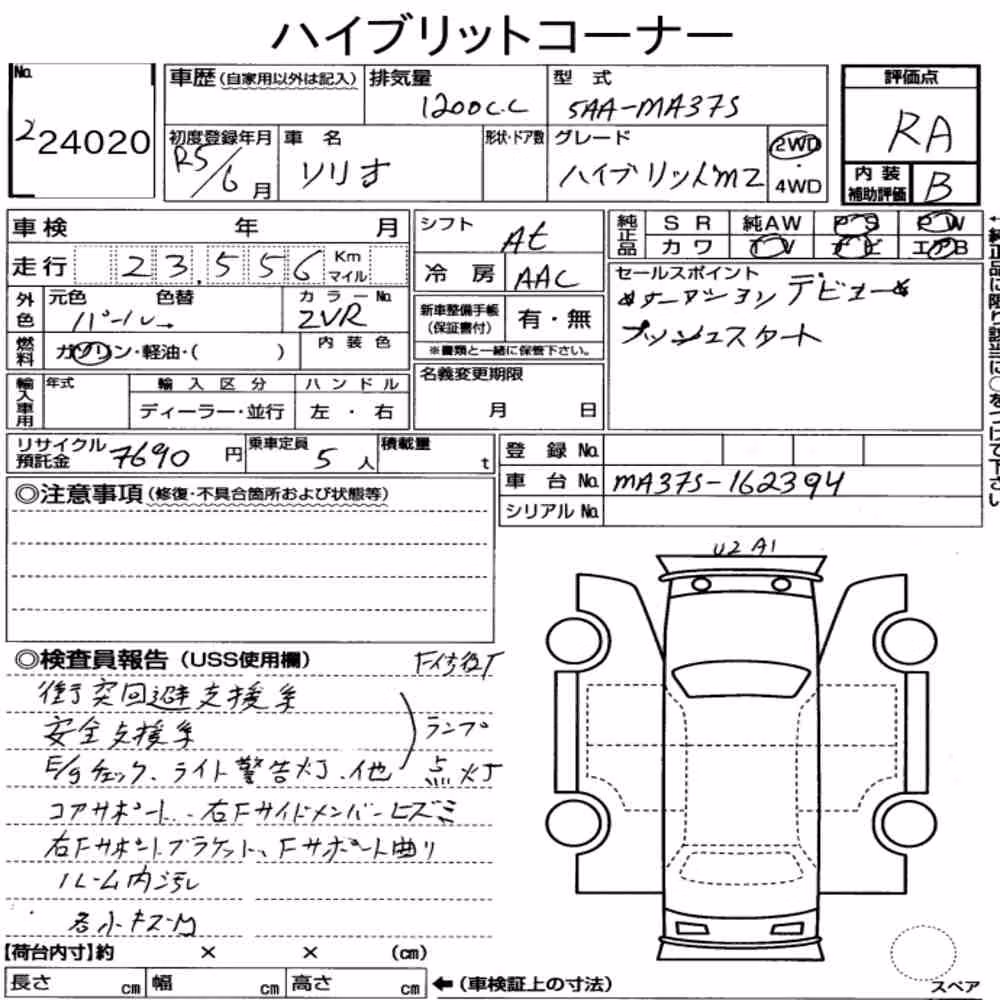 ハイブリットコーナー
No. 224020
車歴 (自家用以外は記入)
排気量 1200c.c
型式 5AA-MA37S
評価点 RA
初度登録年月 R5/6月
車名 ソリオ
形状・ドア数
グレード ハイブリッドMZ
2WD・4WD
内装補助評価 B
車検 年 月
走行 23,556 Km マイル
シフト At
冷房 AAC
純正品 SR 純AW PS PW
カワ TV ナビ エアB
外色 元色 パール 色替
カラーNo. ZVR
燃料 ガソリン・軽油・( )
内装色
新車整備手帳(保証書付) 有・無
※書類と一緒に保管下さい。
セールスポイント
オークションデビュー
プッシュスタート
←純正品に限り該当に○をつけて下さい
輸入車用 年式
輸入区分 ディーラー・並行
ハンドル 左・右
名義変更期限 月 日
リサイクル預託金 7690円
乗車定員 5人
積載量 t
登録No.
車台No. MA37S-162394
シリアルNo.
◎注意事項(修復・不具合箇所および状態等)
U2 A1
◎検査員報告(USS使用欄)
衝突回避支援系
安全支援系
ランプ
E/gチェック、ライト警告灯、他 点灯
コアサポート、右Fサイドメンバーヒズミ
右Fサポートブラケット、Fサポート曲り
ルーム内汚レ
各小キズ・凹
【荷台内寸】約 × × (cm)
長さ cm 幅 cm 高さ cm ←(車検証上の寸法)
スペア